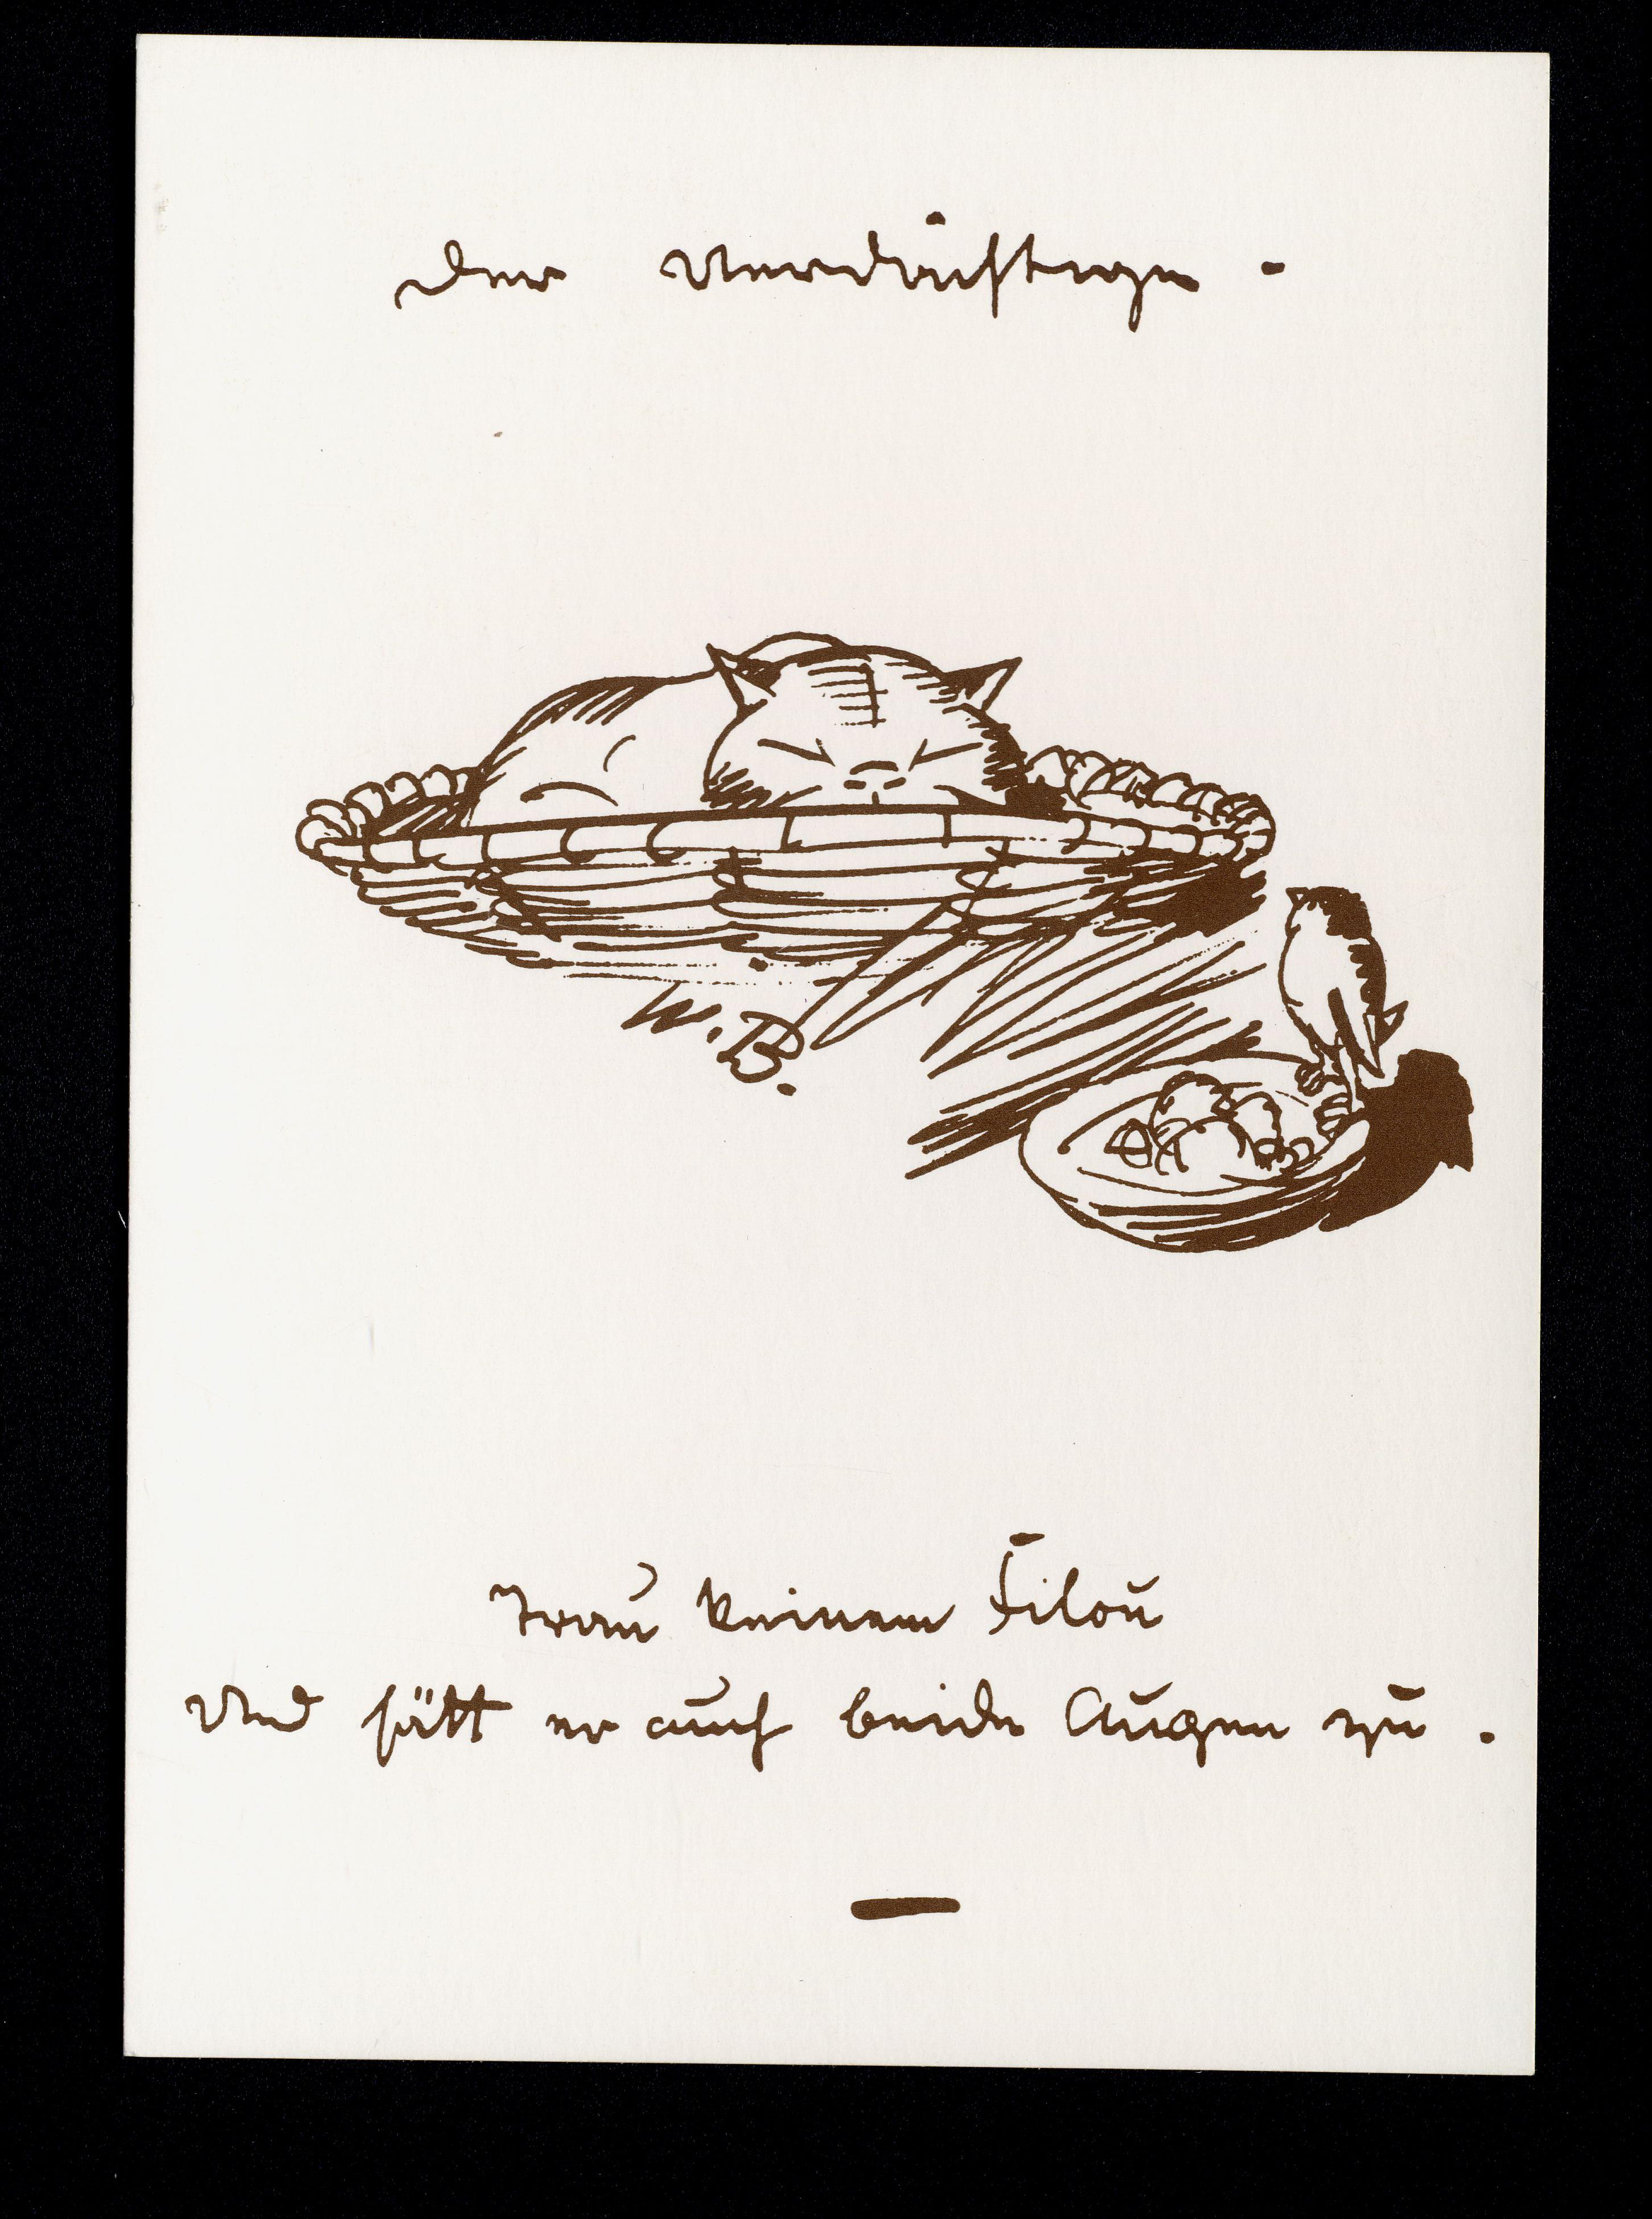 Der Verdächtige.
W.B.
Trau keinem Filou
Und hält er auch beide Augen zu.